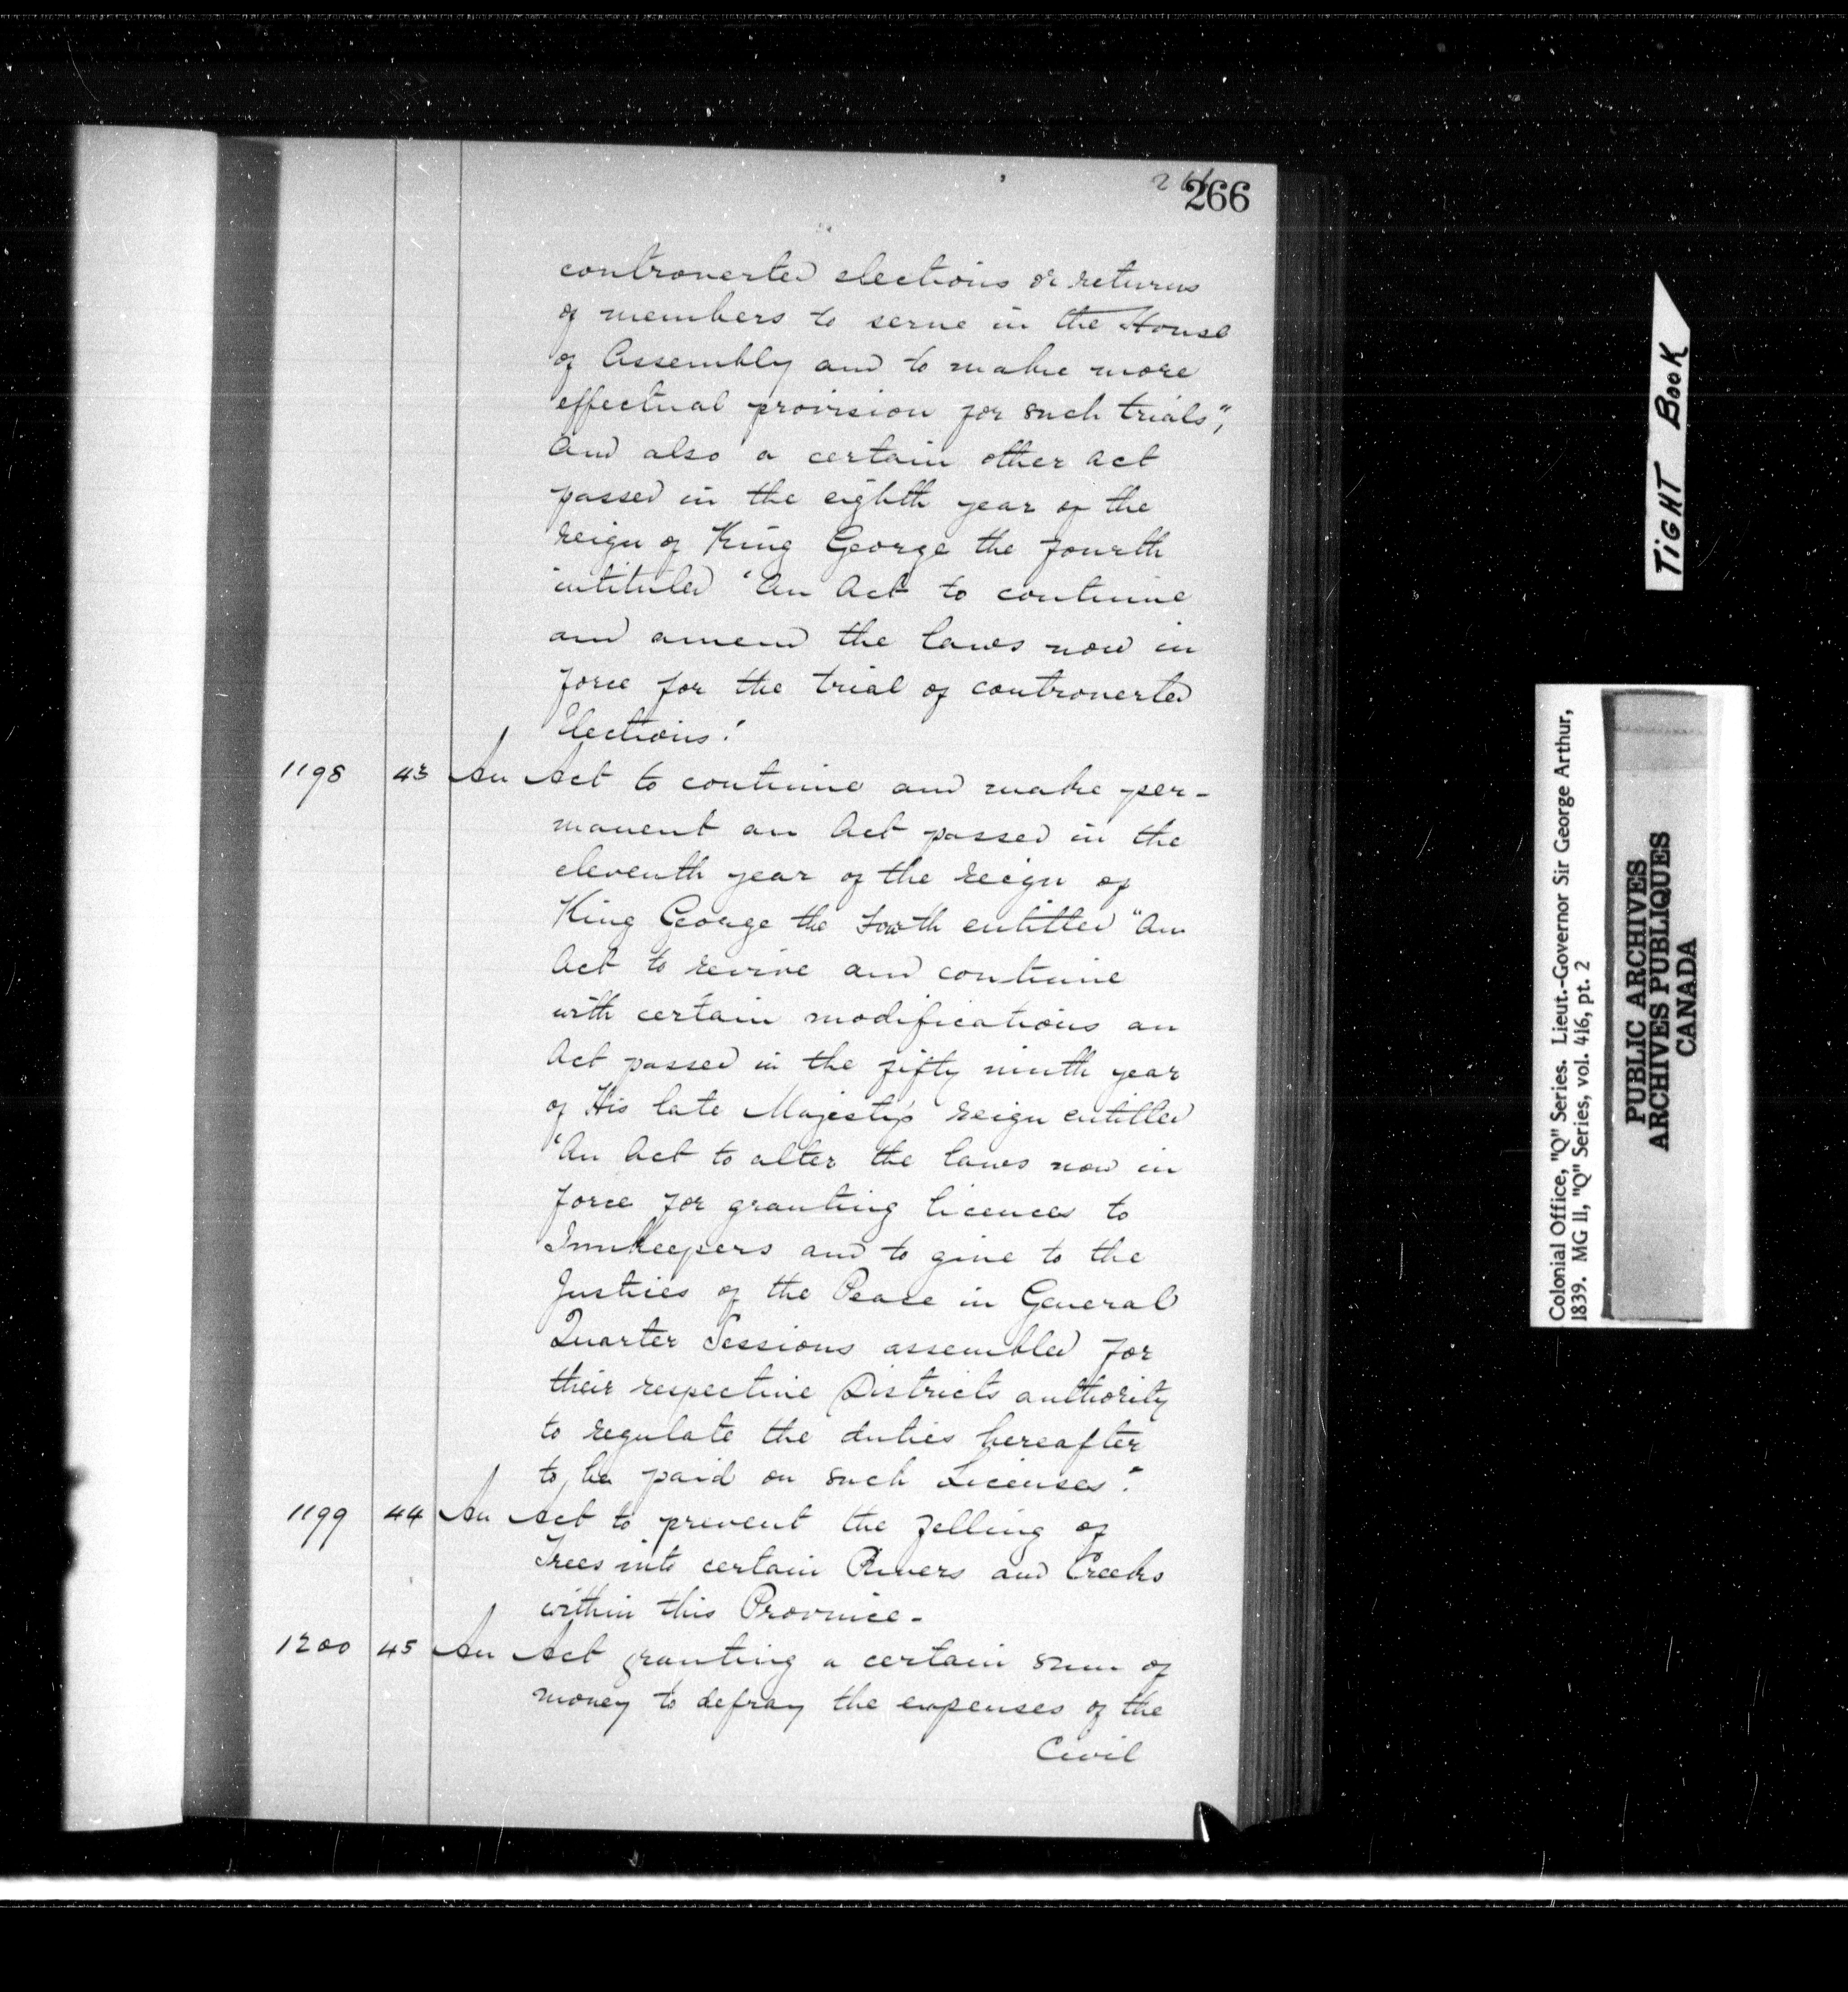 266
266
controverted elections or returns
of members to serve in the House
of Assembly and to make more
effectual provision for such trials",
and also a certain other act
passed in the eighth year of the
reign of King George the fourth
intituled 'An Act to continue
and amend the laws now in
force for the trial of controverted
Elections.'
1198 43 An Act to continue and make per-
manent an Act passed in the
eleventh year of the reign of
King George the Fourth entitled "An
Act to revive and continue
with certain modifications an
Act passed in the fifty ninth year
of His late Majesty's reign entitled
'An Act to alter the laws now in
force for granting licences to
Innkeepers and to give to the
Justices of the Peace in General
Quarter Sessions assembled for
their respective Districts authority
to regulate the duties hereafter
to be paid on such Licenses."
1199 44 An Act to prevent the felling of
Trees into certain Rivers and Creeks
within this Province.
1200 45 An Act granting a certain sum of
money to defray the expenses of the
Civil
TIGHT BOOK
Colonial Office, "Q" Series. Lieut.-Governor Sir George Arthur,
1839. MG 11, "Q" Series, vol. 416, pt. 2
PUBLIC ARCHIVES
ARCHIVES PUBLIQUES
CANADA